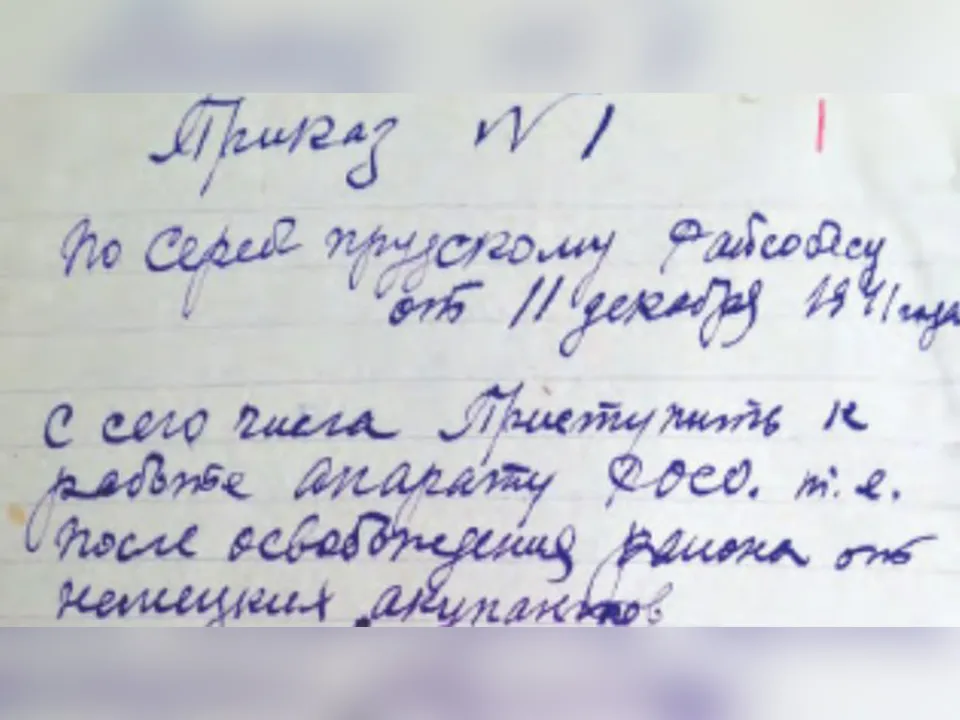 Приказ № 1 1
По Серебпрудскому Райсобесу
от 11 декабря 1941 года
С сего числа Приступить к
работе апарату РОСО. т.е.
после освобождения района от
немецких акупантов